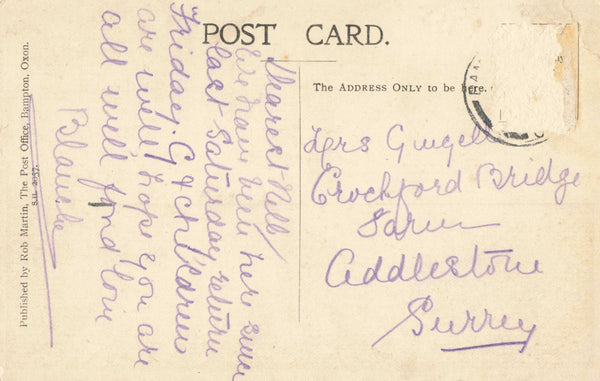 POST CARD.
The ADDRESS ONLY to be here.
BAM
Dearest Nell
We have been here since
last Saturday return
Friday. G & children
are well, hope you are
all well, fond love
Blanche
Mrs Gugel
Crockford Bridge
Farm
Addlestone
Surrey
Published by Rob Martin, The Post Office, Bampton, Oxon.
S.H. 2057.